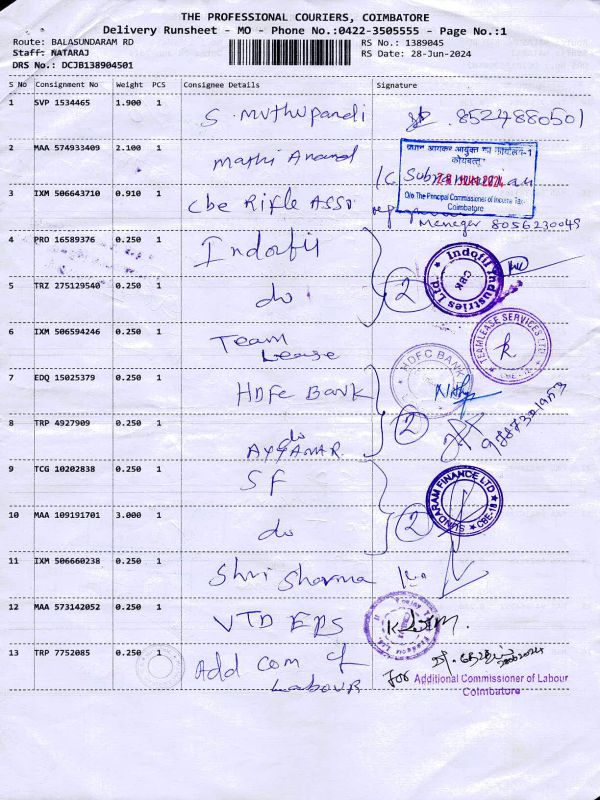 THE PROFESSIONAL COURIERS, COIMBATORE
Delivery Runsheet - MO - Phone No.:0422-3505555 - Page No.:1
Route: BALASUNDARAM RD
RS No.: 1389045
Staff: NATARAJ
RS Date: 28-Jun-2024
DRS No.: DCJB138904501
S No Consignment No Weight PCS Consignee Details Signature
1 SVP 1534465 1.900 1 S. Muthupandi 8524880501
2 MAA 574933409 2.100 1 Mathi Anand
प्रधान आयकर आयुक्त का कार्यालय-1
कोयंबत्तूर
28 JUN 2024
O/o The Principal Commissioner of Income Tax-
Coimbatore
3 IXM 506643710 0.910 1 Cbe Rifle Asso
Maneger 8056230049
4 PRO 16589376 0.250 1 Indofil
Indofil Industries Ltd. CBK
5 TRZ 275129540 0.250 1 do 2
6 IXM 506594246 0.250 1 Team Lease
TEAMLEASE SERVICES LTD
7 EDQ 15025379 0.250 1 HDFC Bank
HDFC BANK
8 TRP 4927909 0.250 1 do AYYANAR. 2
9 TCG 10202838 0.250 1 SF
SUNDARAM FINANCE LTD CBE-18
10 MAA 109191701 3.000 1 do 2
11 IXM 506660238 0.250 1 Shri Sharma
12 MAA 573142052 0.250 1 VTD EPS
13 TRP 7752085 0.250 1 Add Com of Labour
For Additional Commissioner of Labour
Coimbatore